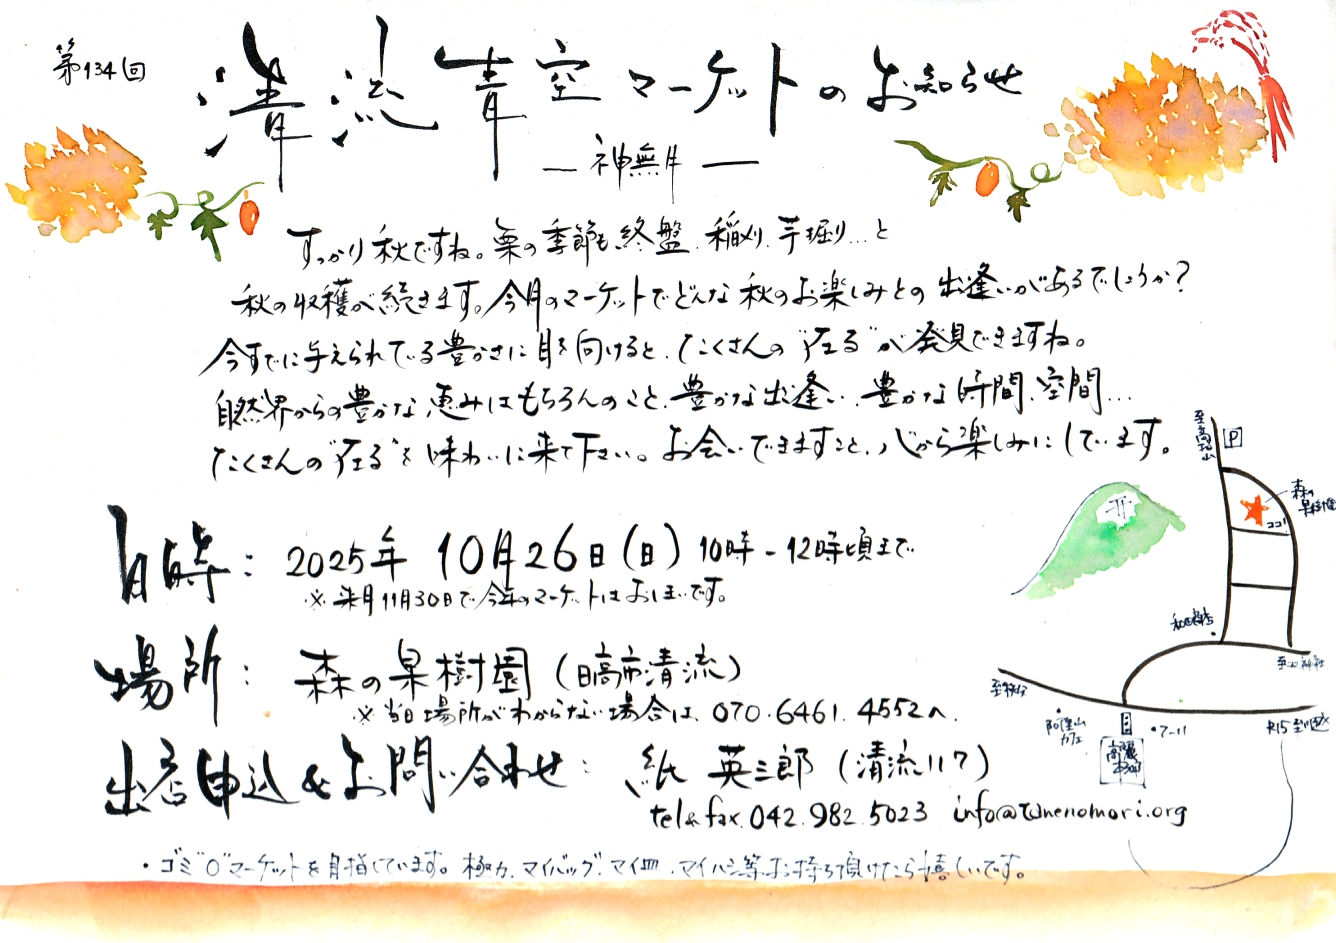 第134回
清流青空マーケットのお知らせ
— 神無月 —
すっかり秋ですね。栗の季節も終盤、稲刈り、芋掘り…と
秋の収穫が続きます。今月のマーケットでどんな秋のお楽しみとの出逢いがあるでしょうか?
今すでに与えられている豊かさに目を向けると、たくさんの"在る"が発見できますね。
自然界からの豊かな恵みはもちろんのこと、豊かな出逢い、豊かな時間、空間…
たくさんの"在る"を味わいに来て下さい。お会いできますこと、心から楽しみにしています。
日時: 2025年 10月26日(日) 10時-12時頃まで
※来月11月30日で今年のマーケットはおしまいです。
場所: 森の果樹園(日高市清流)
※当日場所がわからない場合は、070.6461.4552へ.
出店申込&お問い合わせ: 紙 英三郎(清流117)
tel&fax.042.982.5023 info@tunenomori.org
・ゴミ"0"マーケットを目指しています。極力、マイバッグ、マイ皿、マイハシ等お持ち頂けたら嬉しいです。
至高指山
P
森の果樹園
ココ!
カフェ
・7-11
R15至川越